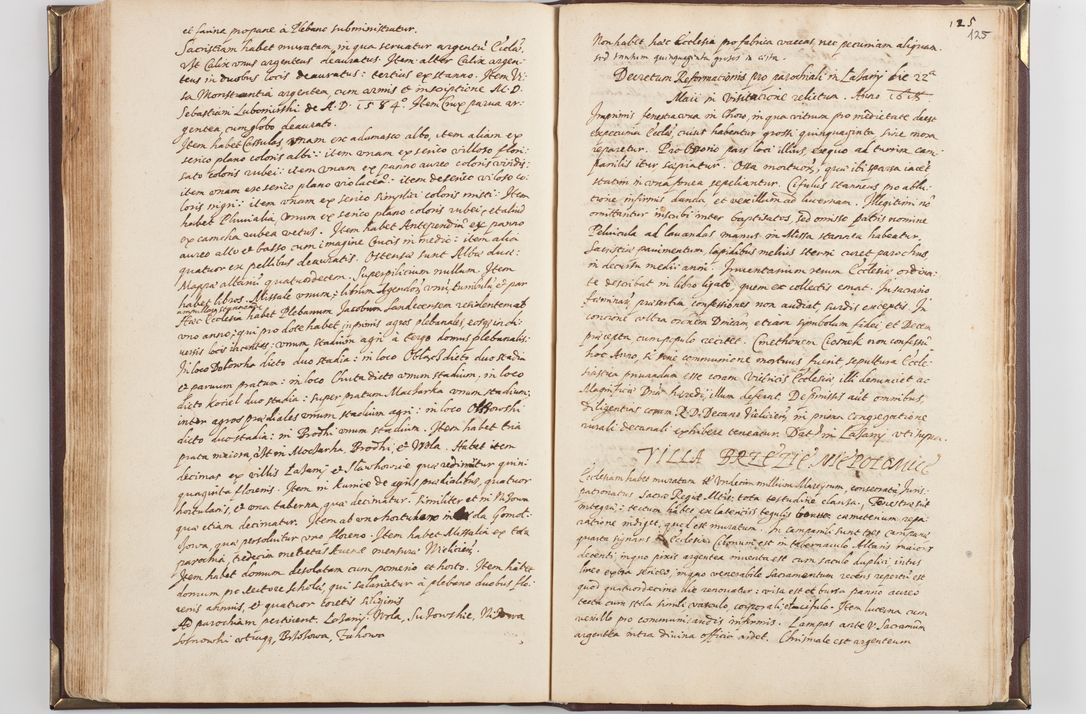 et farinæ propane à Plebano subministratur.
Sacristiam habet muratam, in qua seruatur argenteũ Ecclæ.
Vst Calix vnus argenteus deauratus. Item alter Calix argen-
teus in duobus locis deauratus: tertius ex stanno. Item
sa Monstrantia argentea, cum armis et inscriptione M. D.
Sebastiani Lubomirski de A. D. 1584º. Item Crux parua ar-
gentea, cum globo deaurato.
Item habet Cassulas, vnam ex adamasco albo, item aliam ex
serico plano coloris albi: item vnam ex serico villoso flori-
sato coloris rubei: item vnam ex panno aureo coloris viridis:
item vnam ex serico plano violacea: item de serico viloso co-
loris nigri: item vnam ex serico simplici coloris misti: Item
habet Pluuialia, vnum ex serico plano coloris rubei, et aliud
ex camcha rubea vetus. Item habet Antependium ex panno
aureo alto et basso cum imagine Crucis in medio: item alia
quatuor ex pellibus deauratis. Ostensæ sunt Albæ duæ:
Mappæ altariũ quatuordecem. Superpilicium nullum. Item
habet libros, Missale vnum, librum Agendorũ vnũ, turibulũ et par
Hæc Ecclesia habet Plebanum Jacobum Sandecensem residentem ab
vno anno; qui pro dote habet inprimis agros plebanales, eosqȝ in di-
uersis locis iacentes: vnum stadium agri à tergo domus plebanalis:
In loco Dobonka dicto duo stadia: in loco dicto duo stadia
et paruum pratum: in loco Chuta dicto vnum stadium, in loco
dicto Koziel duo stadia: super pratum Mocharka vnum stadium;
inter agros prædiales vnum stadium agri: in loco
dicto duo stadia: in Brodhi vnum stadium. Item habet tria
prata maiora, vst in Mocharka, Brodhi, et Wola. Habet item
decimas ex villis Lasany et Slawkovice quæ redimuntur quin-
quaginta florenis. Item in Kunice de agris prædialibus, quatuor
hortulanis, et vna taberna, quæ decimatur. Similiter et in
qua etiam decimatur. Item ab vno hortulano in da
, quæ persoluitur vno floreno. Item habet Missalia ex tota
parochia, tredecim metretas Auenæ mensuræ Vielicien̄.
Item habet domum desolatam cum pomerio et horto. Item habet
domum pro Rectore scholæ, qui salariatur à plebano duobus flo-
renis annuis, et quatuor toretis siliginis
Ad parochiam pertinent. Lasany, Wola, Sulowskie,
, Brzosowa, Tahowa
125
125
Non habet hæc Ecclesia pro fabrica vaccas, nec pecuniam aliquam.
sed tantum quinquaginta grosos in cista.
Decretum Reformationis pro parochiali in Lasany die 22ª
Maii in Visitatione relictum. Anno 1618
Imprimis fenestra vna in Choro, in qua vitrum pro medietate deest
ex pecunia Ecclæ, cuius habentur grossi quinquaginta sine mora
reparetur. Pro Ossorio pars loci illius, ex quo ad turrim cam-
panilis itur sæpiatur. Ossa mortuorũ, quæ ibi sparsa iacẽt
statim in vna fouea sepeliantur. Ciphulus stanneus pro ablu-
tione infirmis danda, et vexillum ad lucernam. Illegitimi nõ
omittantur inscribi inter baptisatos, sed omisso patris nomine
Peluicula ad lauandas manus in Missa stannea habeatur.
Sacristiæ pauimentum, lapidibus melius sterni curet parochus,
in decursu medii anni. Inuentarium rerum Ecclesiæ ordina-
te describat in libro ligato, quem ex collectis emat. In sacrario
fæminas, præsertim confessiones non audiat, surdis exceptis. In
concione vltra orõnem Dnicam, etiam symbolum fidei, et Decem
præcepta cum populo recitet. Cmethonem Ciosnek non confessũ
hoc Anno, si sine communione mortuus fuerit, sepultura Eccle-
siastica priuandum esse coram Viciniis Ecclesiæ illi denunciet ac
Magnificæ Dnæ hæredi, illum deferat. De præmissis aũt omnibus
diligentias coram R. D. Decano Vielicien̄, in prima congregatione
rurali decanali exhibere teneatur. Datũ in Lasany vt supra.
VILLA BRZEZIE NIEPOLOMICE
Ecclesiam habet muratam SS Vndecim millium Martyrum, consecratã Juris-
patronatus Sacræ Regiæ Mtis; tota testudine clausa, Fenestræ sũt
integræ: tectum habet ex lateritiis tegulis cæmeterium repa-
ratione indiget, quod est muratum. In campanili sunt tres campanæ
quarta signans in Ecclesia. Ciborium est in tabernaculo Altaris maioris
decenti, in quo pixis argentea inuenta est cum sacculo duplici intus
lineo extra sericeo, in quo venerabile Sacramentum recens repertũ est
quod quatuordecimo die renouatur: visa est et bursa panno aureo
tecta cum stola simili, vasculo, corporali, et ciphulo. Item lucerna cum
vexillo pro communicandis infirmis. Lampas ante V. Sacramẽtum
argentea intra diuina officia ardet. Chrismale est argenteum